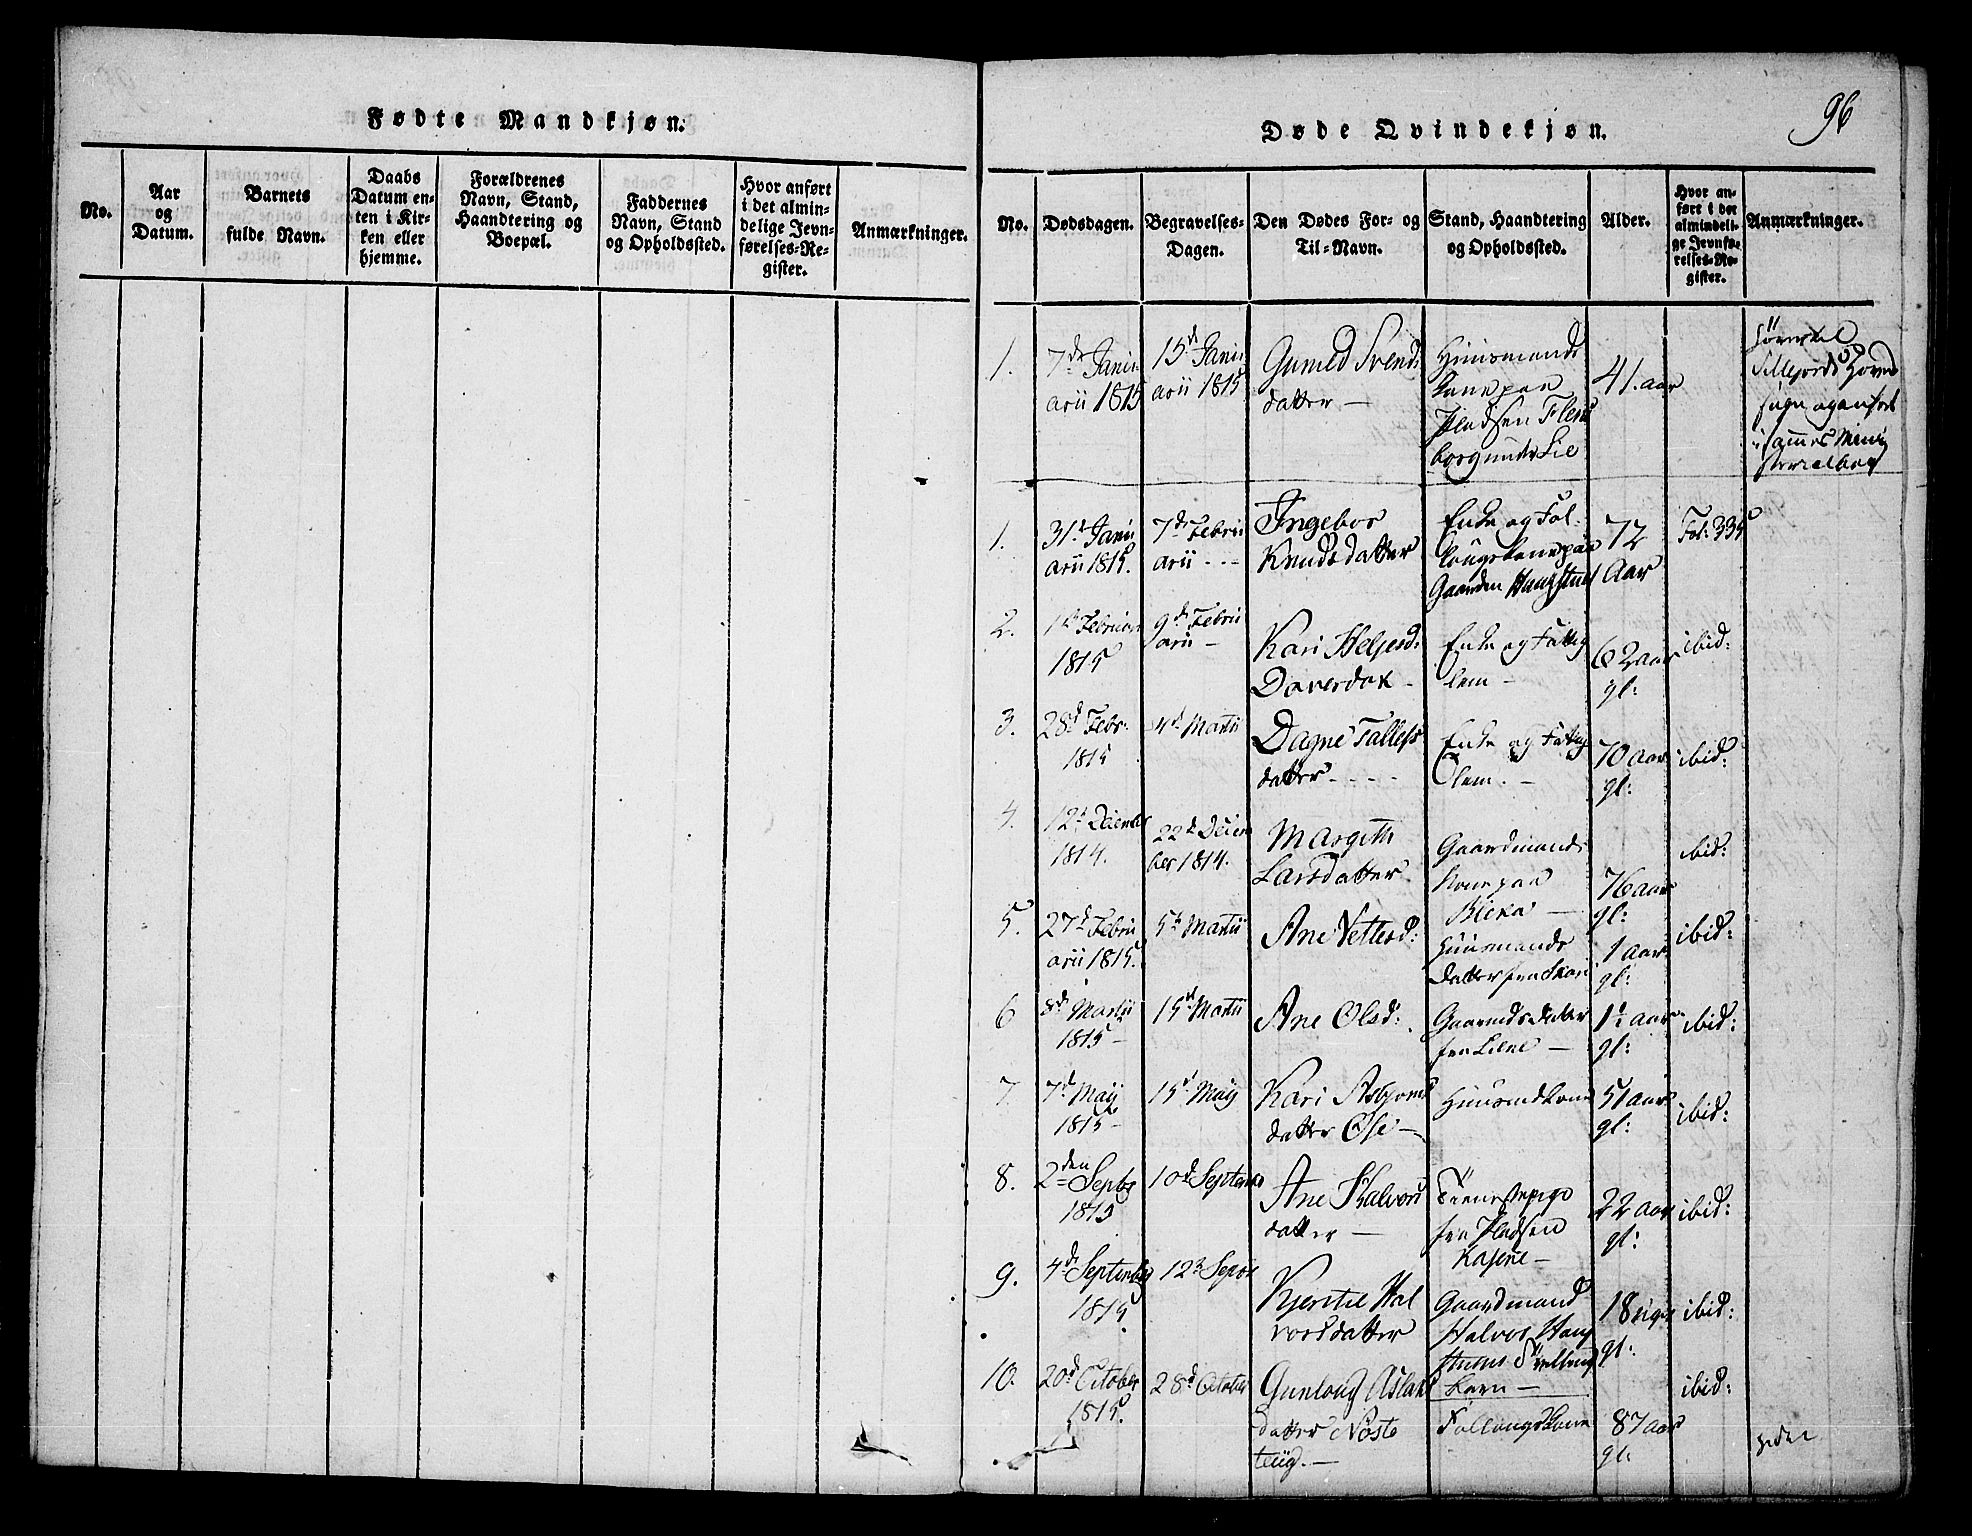 96
Fødte Mandkjøn.
No.
Aar
og
Datum.
Barnets
fulde Navn.
Daabs
Datum en-
ten i Kir-
ken eller
hjemme.
Forældrenes
Navn, Stand,
Haandtering og
Boepæl.
Faddernes
Navn, Stand
og Opholdssted.
Hvor anført
i det almin-
delige Jevn-
førelses-Re-
gister.
Anmærkninger.
Døde Qvindekjøn.
No.
Dødsdagen.
Begravelses-
Dagen.
Den Dødes For- og
Til-Navn.
Stand, Haandtering
og Opholdssted.
Alder.
Hvor an-
ført i det
almindeli-
ge Jevnfø-
relses-Re-
gister.
Anmærkninger.
1.
7de Janu
arii 1815
15d Janu
arii 1815
Gunild Svends
datter —
Huusmands
kone paa
Pladsen Fles
borgunde Lie
41. aar
Sillejords Hoved
sogn og anført
i sammes Mini
sterialbog
1.
31d Janu
arii 1815.
7de Febru
arii - - -
Ingebor
Knudsdatter
Enke og Fol-
lougskone paa
Gaarden Haugstuel
72
Aar
Fol: 335
2.
1d Februar
1815
9d Febru
arii —
Kari Heljesd:
Daverdak -
Enke og Fattig
lem —
62 aar
gl:
ibid:
3.
28d Febr:
1815
4d Martii
Dagne Tallefs
datter - - - -
Enke og Fattig
lem. —
70 aar
gl:
ibid:
4.
12d December
1814.
22d Decem
ber 1814.
Margith
Larsdatter
Gaardmands
kone paa
Bleka —
76 aar
gl:
ibid:
5.
27d Febru
arii 1815.
5d Martii
Ane Vettersd:
Huusmands
datter fra Skori
1 aar
gl:
ibid:
6
8d Martii
1815 -
15d Martii
Ane Olsd:
Gaarmdsdatter
fra Liene —
1½ aar
gl:
ibid:
7.
7d Maij
1815 -
15d Maij
Kari Asbjorns
datter Ose —
Huusmdkone
51 aar
gl:
ibid:
8.
2den Septbr
1815
10d September
Ane Halvors
datter —
Tienestepige
fra Pladsen
Kasene —
22 aar
gl:
ibid:
9.
4de September
1815
12d Septbr
Kjerstie Hal
vorsdatter
Gaardmand
Halvor Haug
stuels Tvilling
barn —
18 uger
gl:
ibid:
10.
20d October
1815.
28d October
Gunloug Aslaks
datter Nøste
teug. —
Follougskone
87 aar
gl:
ibid: